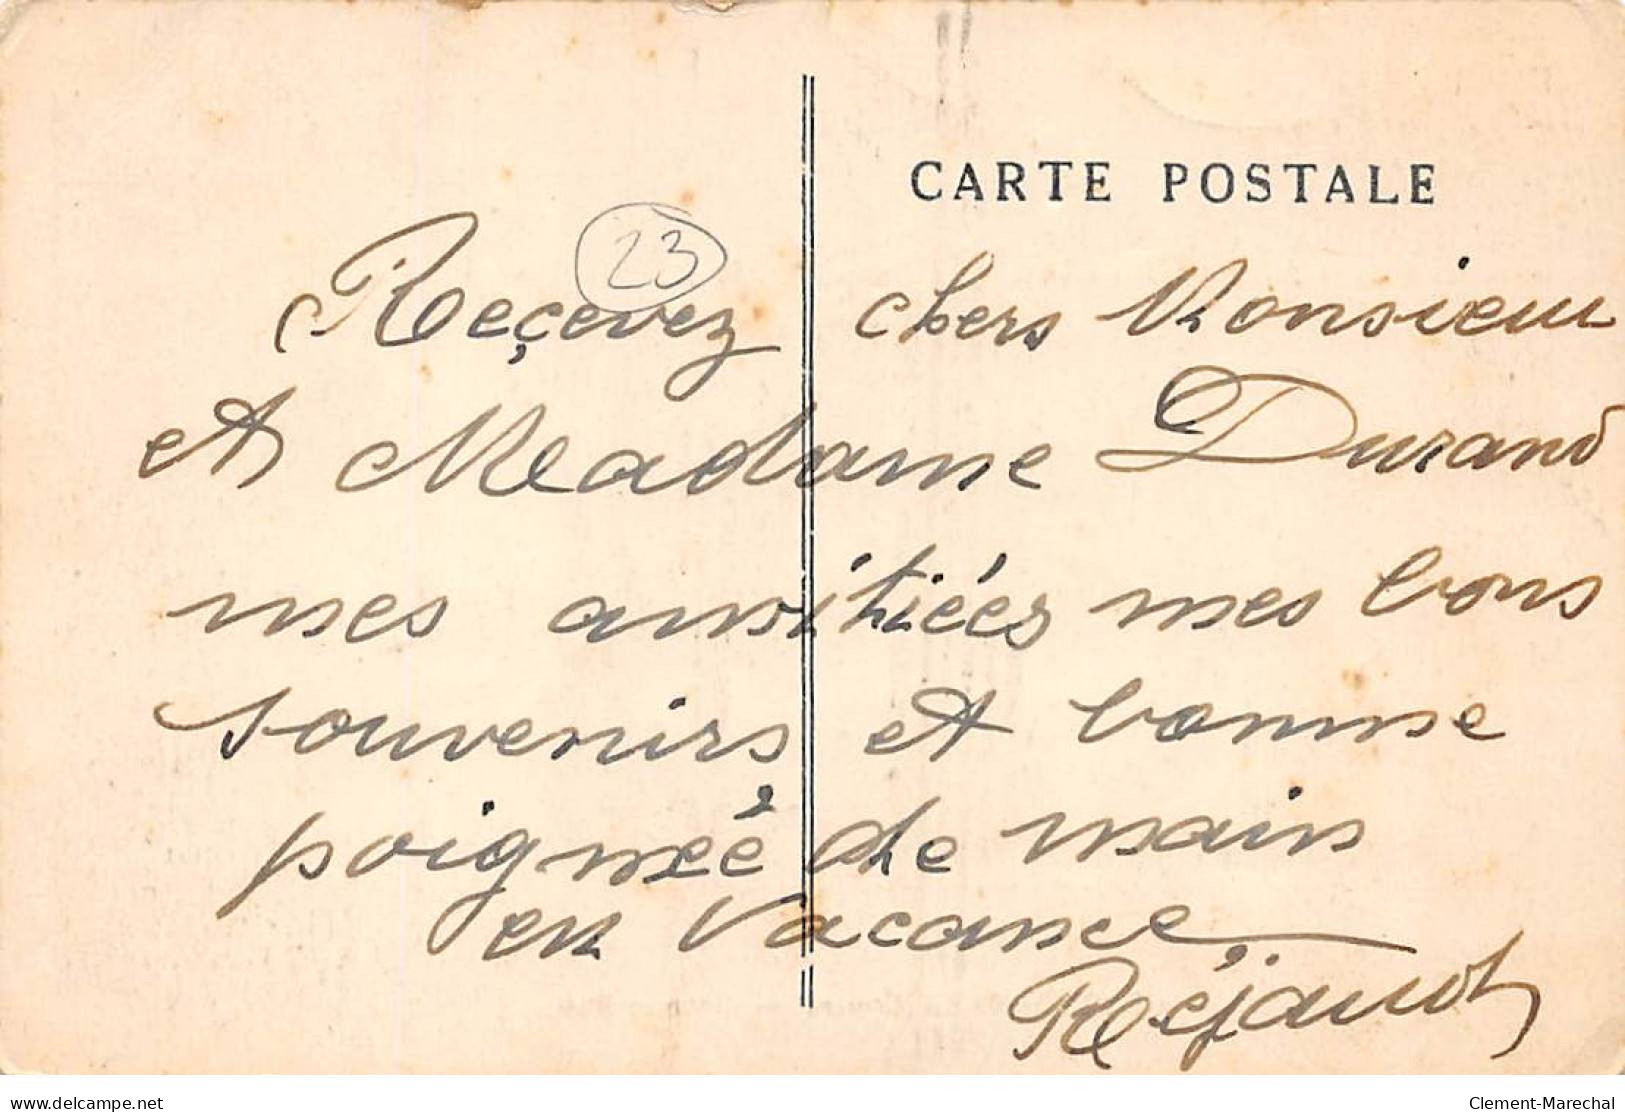 CARTE POSTALE
23
Reçevez chers Monsieur
et Madame Durand
mes amitiéés mes bons
souvenirs et bonne
poignéé de main
en vacance,
delcampe.net
Clement-Marechal